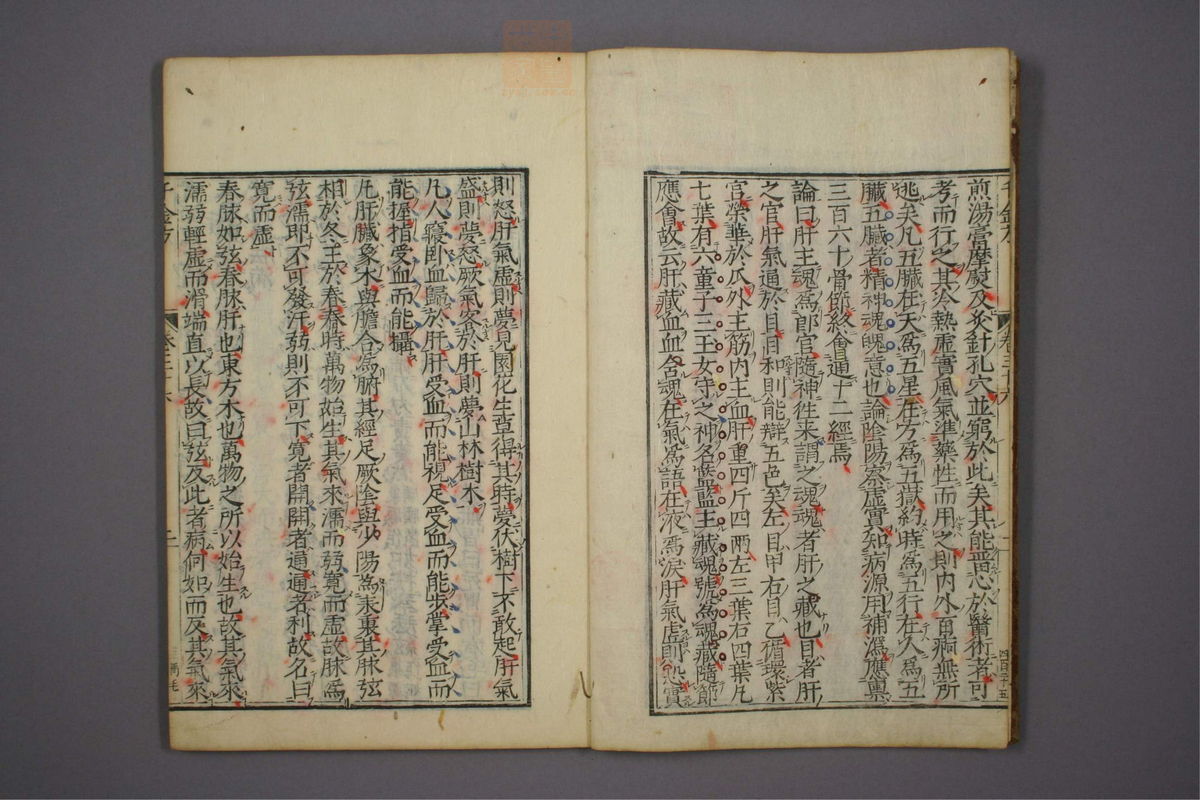 煎湯膏摩熨及灸針孔穴並窮於此矣其能留心於醫術者可
考而行之其冷熱虛實風氣準藥性而用之則内外百痾無所
逃矣凡五臟在天爲五星在方爲五嶽約時爲五行在人爲五
臟五臟者精神魂魄意也論陰陽察虛實知病源用補爲應稟
三百六十骨節終會通十二經焉
論曰肝主魂爲郎官隨神徃來謂之魂魂者肝之藏也目者肝
之官肝氣通於目目和則能辯五色矣左目甲右目乙循環紫
官榮華於爪外主筋内主血肝重四斤四兩左三葉右四葉凡
七葉有六童子三玉女守之神名監主藏魂號爲魂藏隨節
應會故云肝藏血血舍魂在氣爲語在液爲淚肝氣虛則恐實
則怒肝氣虛則夢見園花生草得其時夢伏樹下不敢起肝氣
盛則夢怒厥氣客於肝則夢山林樹木
凡人寢卧血歸於肝肝受血而能視足受血而能步掌受血而
能握指受血而能攝
凡肝臟象木與膽合爲腑其經足厥陰與少陽爲表裏其脉弦
相於冬王於春春時萬物始生其氣來濡而弱寬而虛故脉爲
弦濡即不可發汗弱則不可下寬者開開者通通者利故名曰
寬而虛
春脉如弦春脉肝也東方木也萬物之所以始生也故其氣來
濡弱輕虛而滑端直以長故曰弦反此者病何如而反其氣來